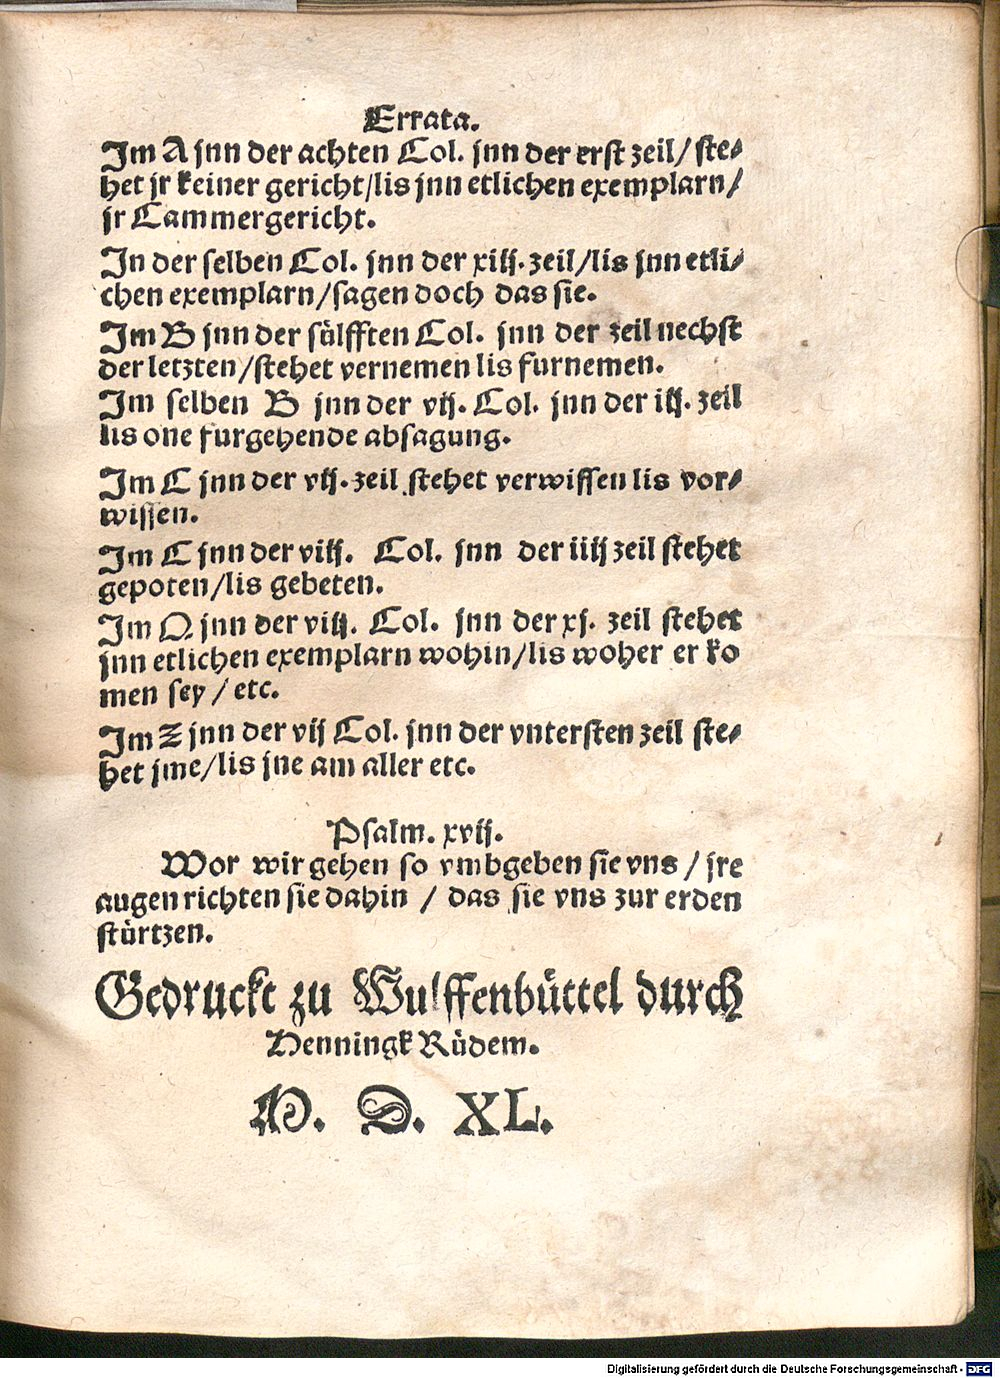 Errata.
Im A jnn der achten Col. jnn der erst zeil/ ste⸗
het jr keiner gericht/lis jnn etlichen exemplarn/
jr Cammergericht.
In der selben Col. jnn der xiij. zeil/lis jnn etli⸗
chen exemplarn/sagen doch das sie.
Im B jnn der fülfften Col. jnn der zeil nechst
der letzten/stehet vernemen lis furnemen.
Im selben B jnn der vij. Col. jnn der iij. zeil
lis one furgehende absagung.
Im C jnn der vij. zeil stehet verwissen lis vor⸗
wissen.
Im C jnn der viij. Col. jnn der iiij zeil stehet
gepoten/lis gebeten.
Im Q jnn der viij. Col. jnn der xj. zeil stehet
jnn etlichen exemplarn wohin/lis woher er ko
men sey / etc.
Im Z jnn der vij Col. jnn der vntersten zeil ste⸗
het jme/lis jne am aller etc.
Psalm. xvij.
Wor wir gehen so vmbgeben sie vns / jre
augen richten sie dahin / das sie vns zur erden
stürtzen.
Gedruckt zu Wulffenbüttel durch
Henningk Rüdem.
M. D. XL.
Digitalisierung gefördert durch die Deutsche Forschungsgemeinschaft - DFG